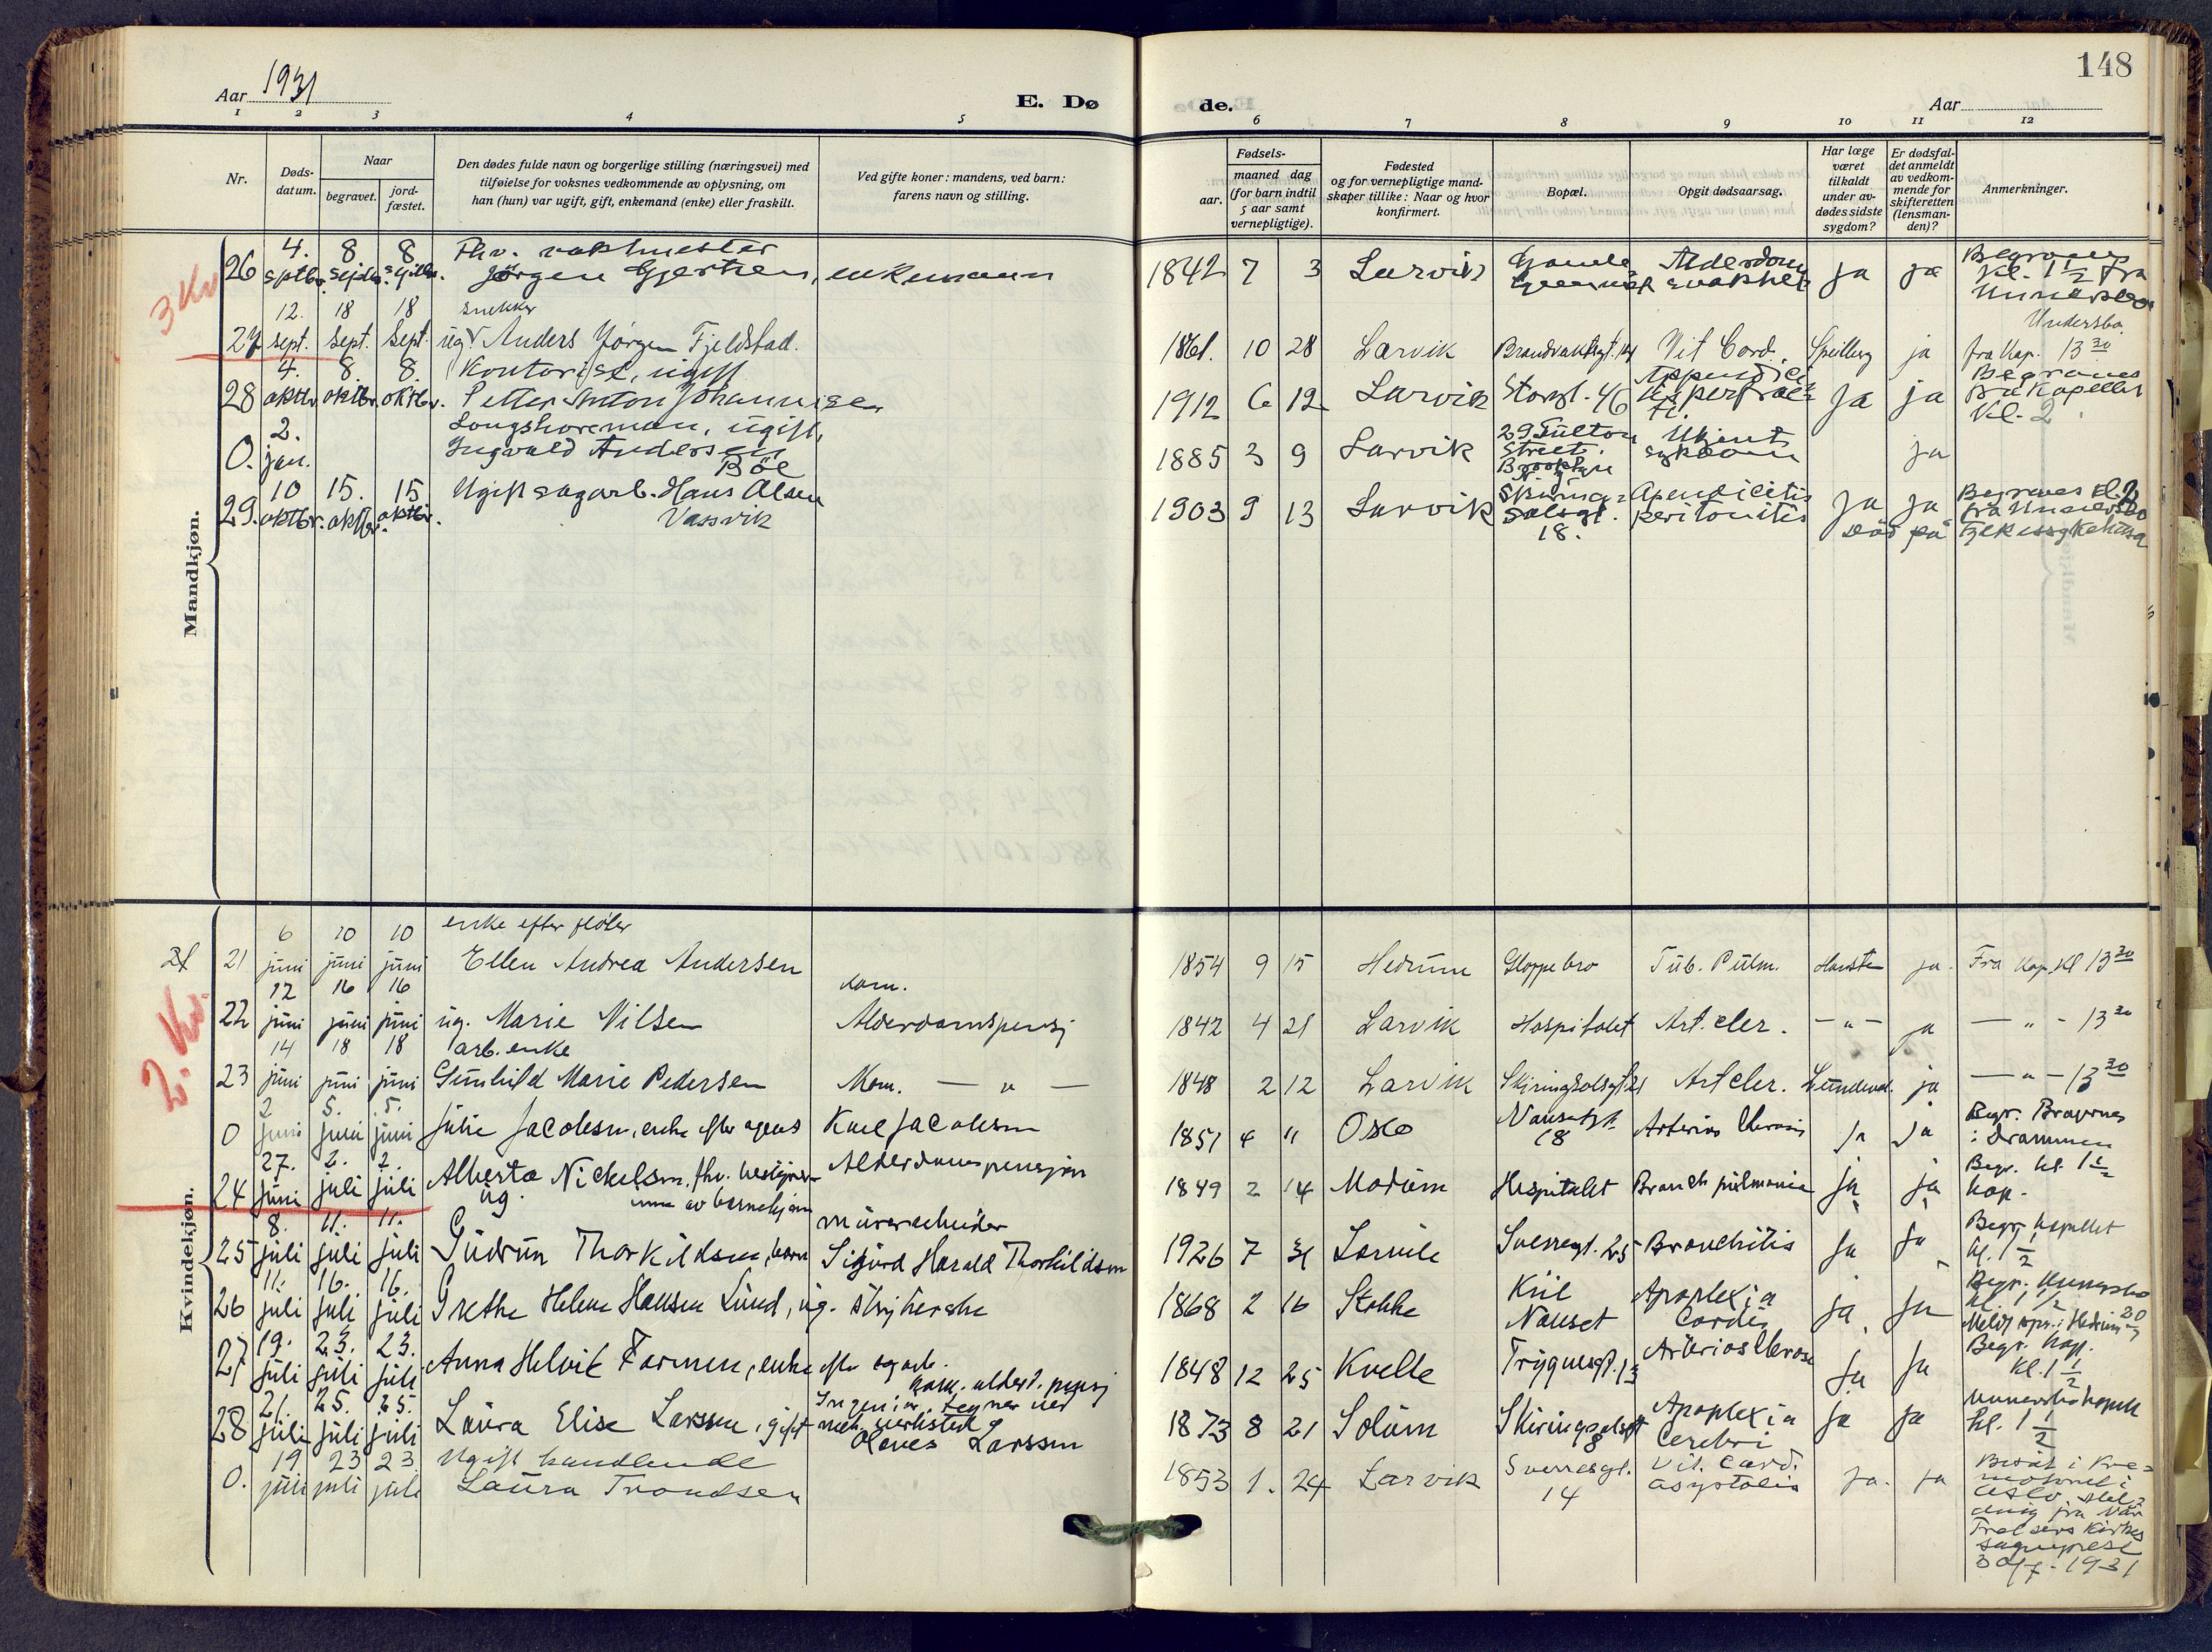 148
Aar 1931
E. Dø
de.
Aar
1 2 3 4 5 6 7 8 9 10 11 12
Nr.
Døds-
datum.
Naar
begravet.
jord-
fæstet.
Den dødes fulde navn og borgerlige stilling (næringsvei) med
tilføielse for voksnes vedkommende av oplysning, om
han (hun) var ugift, gift, enkemand (enke) eller fraskilt.
Ved gifte koner: mandens, ved barn:
farens navn og stilling.
Fødsels-
aar.
maaned dag
(for barn indtil
5 aar samt
vernepligtige).
Fødested
og for vernepligtige mand-
skaper tillike: Naar og hvor
konfirmert.
Bopæl.
Opgit dødsaarsag.
Har læge
været
tilkaldt
under av-
dødes sidste
sygdom?
Er dødsfal-
det anmeldt
av vedkom-
mende for
skifteretten
(lensman-
den)?
Anmerkninger.
Mandkjøn.
3 Kv
4. 8 8 Fhv. vaktmester
26 septbr. septbr. septbr. Jørgen Gjertsen, enkemann 1842 7 3 Larvik Gamle Alderdoms svakhet ja ja Begraves kl. 1 1/2 fra Undersbo
12. 18 18 snekker
27 sept. sept. sept. ug. Anders Jørgen Fjeldstad. 1861. 10 28 Larvik Brandvaktsgt. 14 Vit. Cord. ja Undersbo. fra Kap. 13 30
4. 8. 8. Kontorist, ugift
28 oktbr. oktbr. oktbr. Petter Anton Johannisen 1912 6 12 Larvik Storgt. 46 Ja ja Begraves fra Kapellet Kl. 2
2. Longshoreman, ugift,
0. jan. Ingvald Andersen Böe 1885 3 9 Larvik 29 Fulton Street. Brooklyn N.Y. Ukjent sykdom ja
10 15. 15 Ugift sagarb. Hans Olsen
29. oktbr. oktbr. oktbr. Vassvik 1903 9 13 Larvik Skirings- salsgt. 18. Apendicitis peritonitis Ja Ja Begraves kl. 2 fra Undersbo
Död på Fylkessykehusa
Kvindekjøn.
2. Kv.
6 10 10 enke efter fløter
21 juni juni juni Ellen Andrea Andersen 1854 9 15 Hedrum Gloppebro Tub. Pulm. ja. Fra Kap. kl 13 30
12 16 16 kom.
22 juni juni juni ug. Marie Nilsen Alderdomspensj 1842 4 21 Larvik Hospitalet Art. cler. — " — ja — " — 13 30
14 18 18 arb. enke
23 juni juni juni Gunhild Marie Pedersen Kom. — " — 1848 2 12 Larvik Skiringsalsgt 21 Art cler. ja — " — 13 30
2 5. 5.
0 juni juni juni Julie Jacobsen, enke efter agent Karl Jacobsen 1851 4 11 Oslo Nansetgt. 18 Arterios clerosis ja ja Begr. Bragernes i Drammen
27. 2. 2.
24 juni juli juli Alberta Nickelsen, fhv. bestyrer- inne av barnehjem ug. Alderdomspensjon 1849 2 14 Modum Hospitalet Bronch pulmonia ja ja Begr. kl. 1 1/2 kap.
8. 11. 11. murarbeider
25 juli juli juli Gudrun Thorkildsen, barn Sigurd Harald Thorkildsen 1926 7 31 Larvik Sverresgt. 25 Bronchitis ja ja Begr. kapellet kl. 1 1/2
11. 16. 16.
26 juli juli juli Grethe Helene Hansen Lund, ug. strykerske 1868 2 16 Stokke Nanset Apoplexia Cordis ja ja Begr. Undersbo kl. 1 1/2
19. 23. 23.
27 juli juli juli Anna Helvik Farmen, enke efter sagarb. kom. alderd. pensj 1848 12 25 Kvelle Tryguesgt. 13 Arteriosclerose ja ja Begr. kap. kl. 1 1/2
21. 25. 25. Ingeniør, tegner ved
28 juli juli juli Laura Elise Larssen, gift mek. verksted Larssen 1873 8 21 Solum Skiringsalsgt 8 Apoplexia Cerebri ja ja Undersbo kapell kl. 1 1/2
19 23 23. Ugift handlende
0. juli juli juli Laura Trondsen 1853 1. 24 Larvik Sverresgt. 14 Vit. Card. asystolis ja. ja Bisat i Kre- matoriet i Oslo. Mel- ding fra Vår Frelsers Kirkes sogneprest 30/7 - 1931